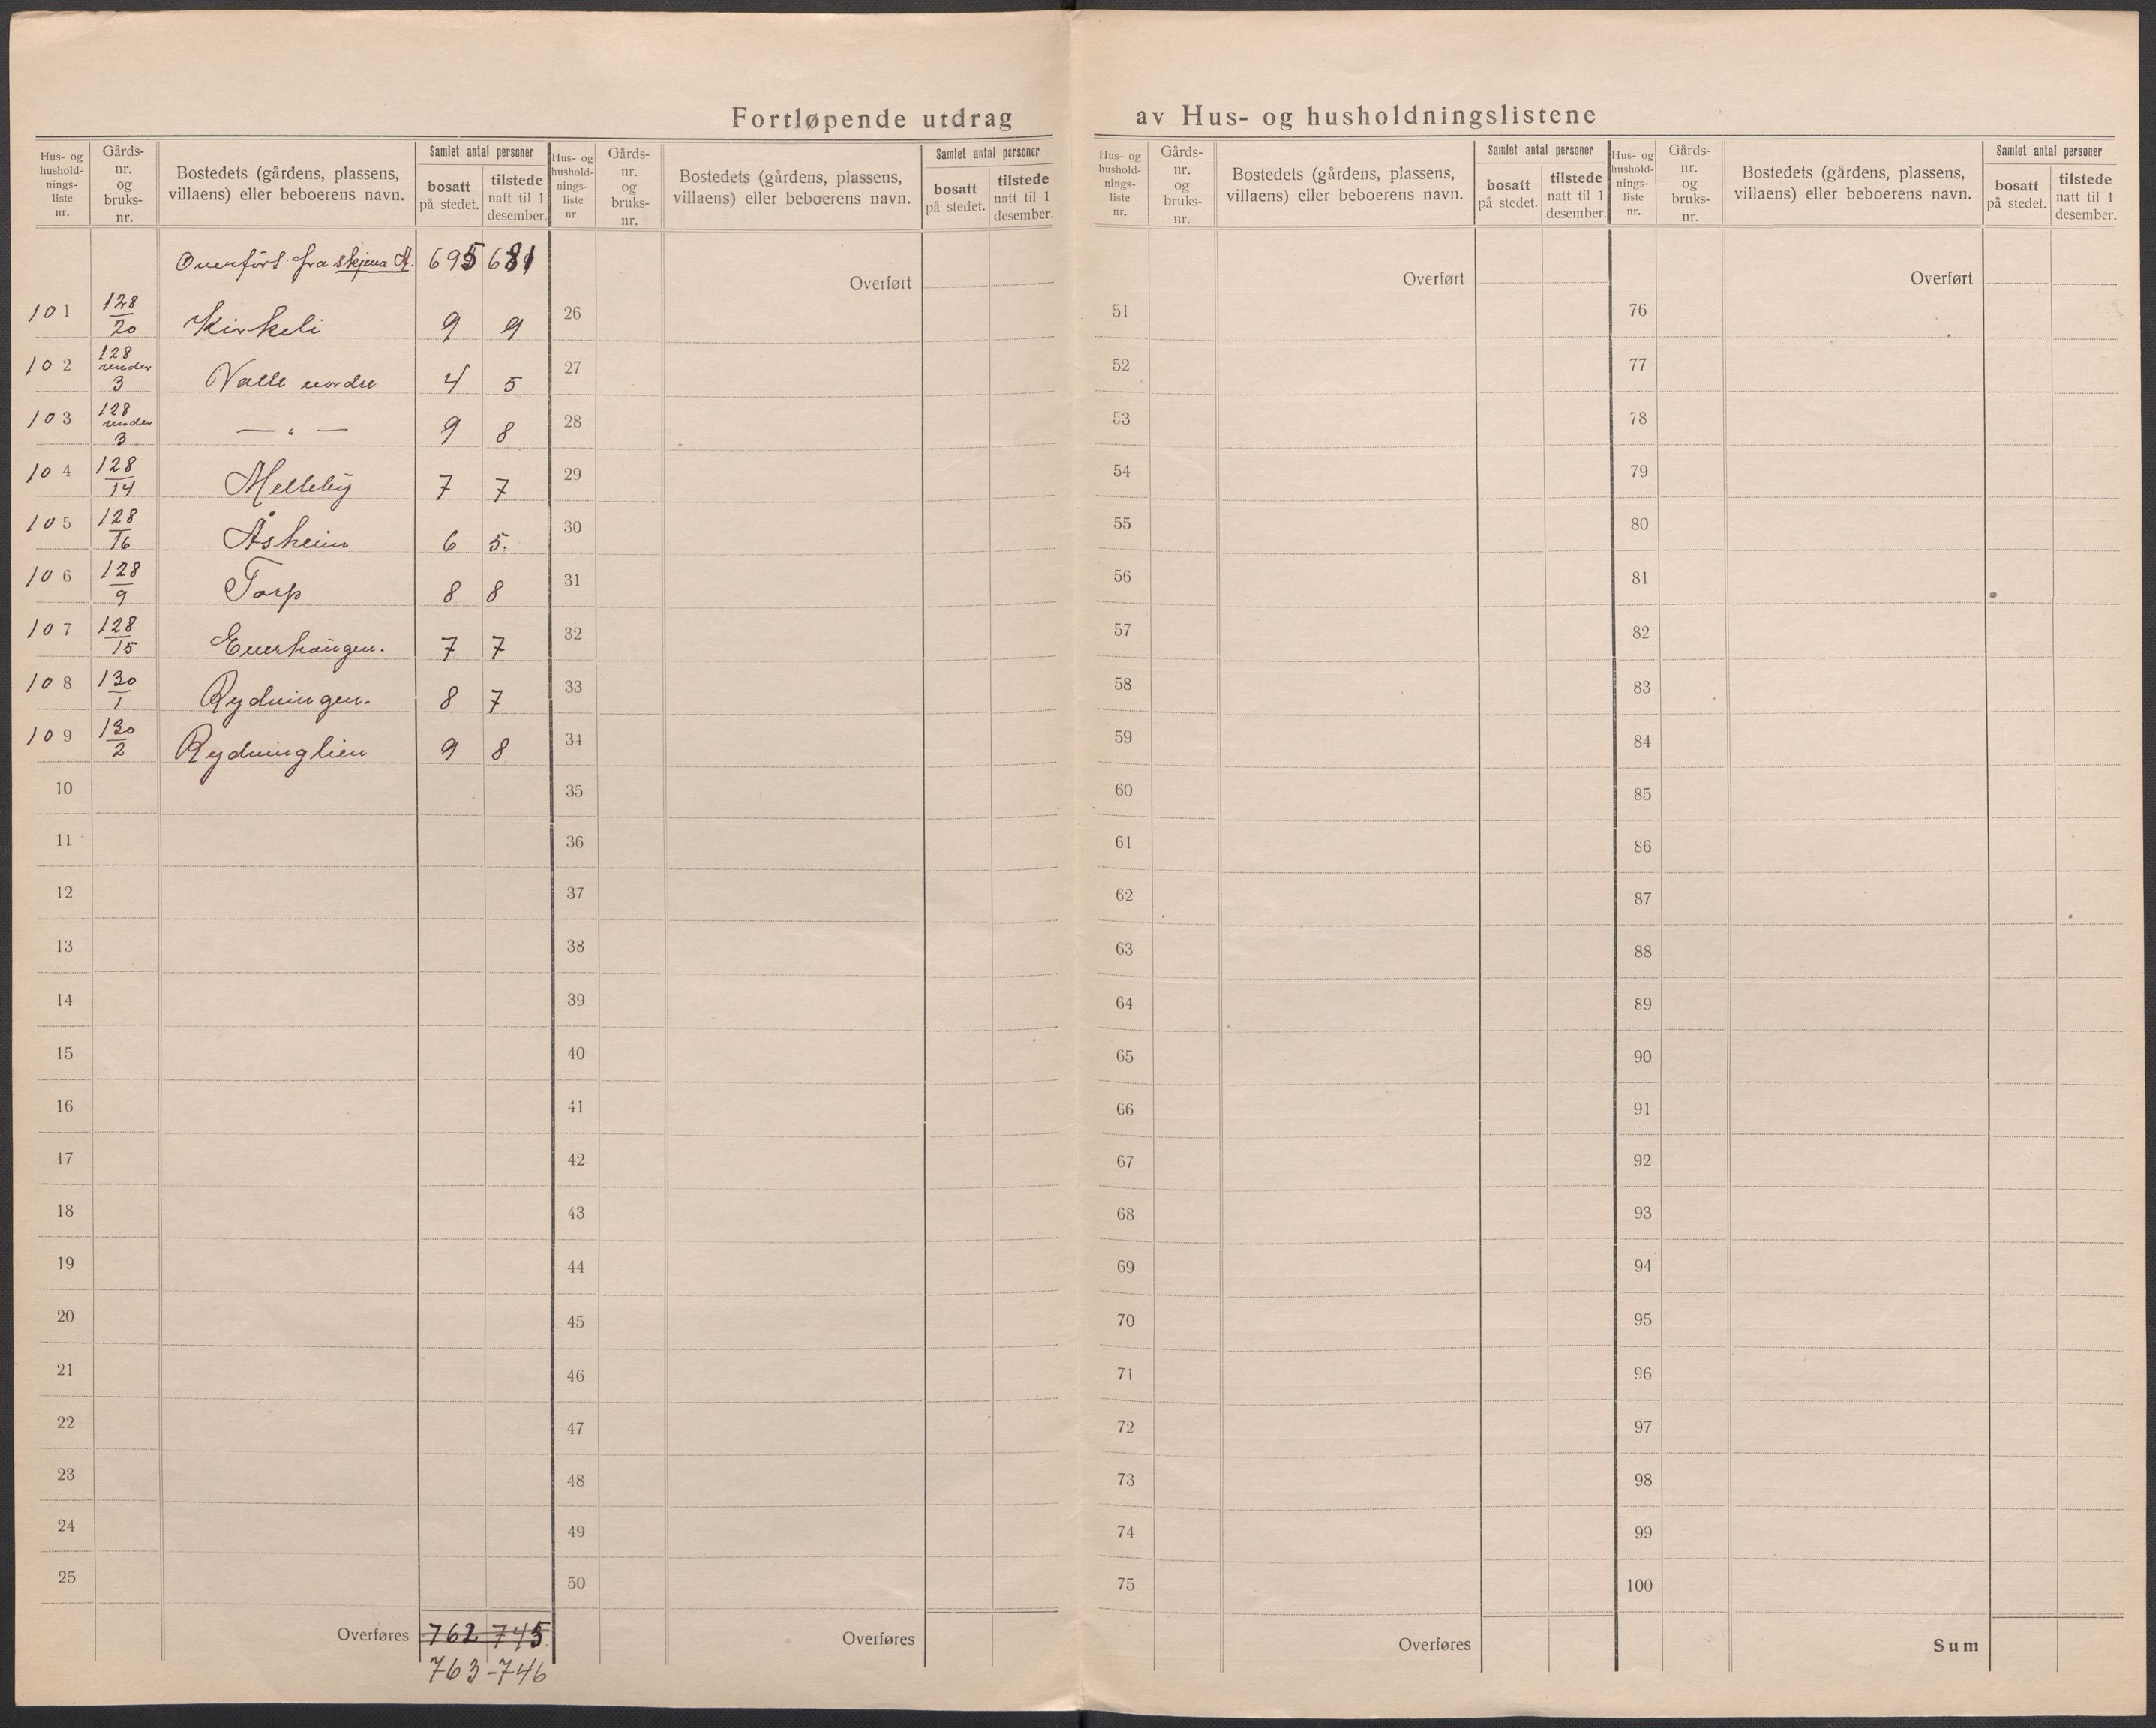 Fortløpende utdrag av Hus- og husholdningslistene
Hus- og hushold- nings- liste nr. Gårds- nr. og bruks- nr. Bostedets (gårdens, plassens, villaens) eller beboerens navn. Samlet antal personer bosatt på stedet. tilstede natt til 1 desember.
Hus- og hushold- nings- liste nr. Gårds- nr. og bruks- nr. Bostedets (gårdens, plassens, villaens) eller beboerens navn. Samlet antal personer bosatt på stedet. tilstede natt til 1 desember.
Hus- og hushold- nings- liste nr. Gårds- nr. og bruks- nr. Bostedets (gårdens, plassens, villaens) eller beboerens navn. Samlet antal personer bosatt på stedet. tilstede natt til 1 desember.
Hus- og hushold- nings- liste nr. Gårds- nr. og bruks- nr. Bostedets (gårdens, plassens, villaens) eller beboerens navn. Samlet antal personer bosatt på stedet. tilstede natt til 1 desember.
Overført fra skjema A. 695 681
101 128/20 Kirkeli 9 9
102 128 under 3 Valle nordre 4 5
103 128 under 3 — " — 9 8
104 128/14 Melleby 7 7
105 128/16 Åsheim 6 5.
106 128/9 Torp 8 8
107 128/15 Enerhaugen. 7 7
108 130/1 Rydningen. 8 7
109 130/2 Rydninglien 9 8
10
11
12
13
14
15
16
17
18
19
20
21
22
23
24
25
Overføres 762 745
763-746
Overført
26
27
28
29
30
31
32
33
34
35
36
37
38
39
40
41
42
43
44
45
46
47
48
49
50
Overføres
Overført
51
52
53
54
55
56
57
58
59
60
61
62
63
64
65
66
67
68
69
70
71
72
73
74
75
Overføres
Overført
76
77
78
79
80
81
82
83
84
85
86
87
88
89
90
91
92
93
94
95
96
97
98
99
100
Sum